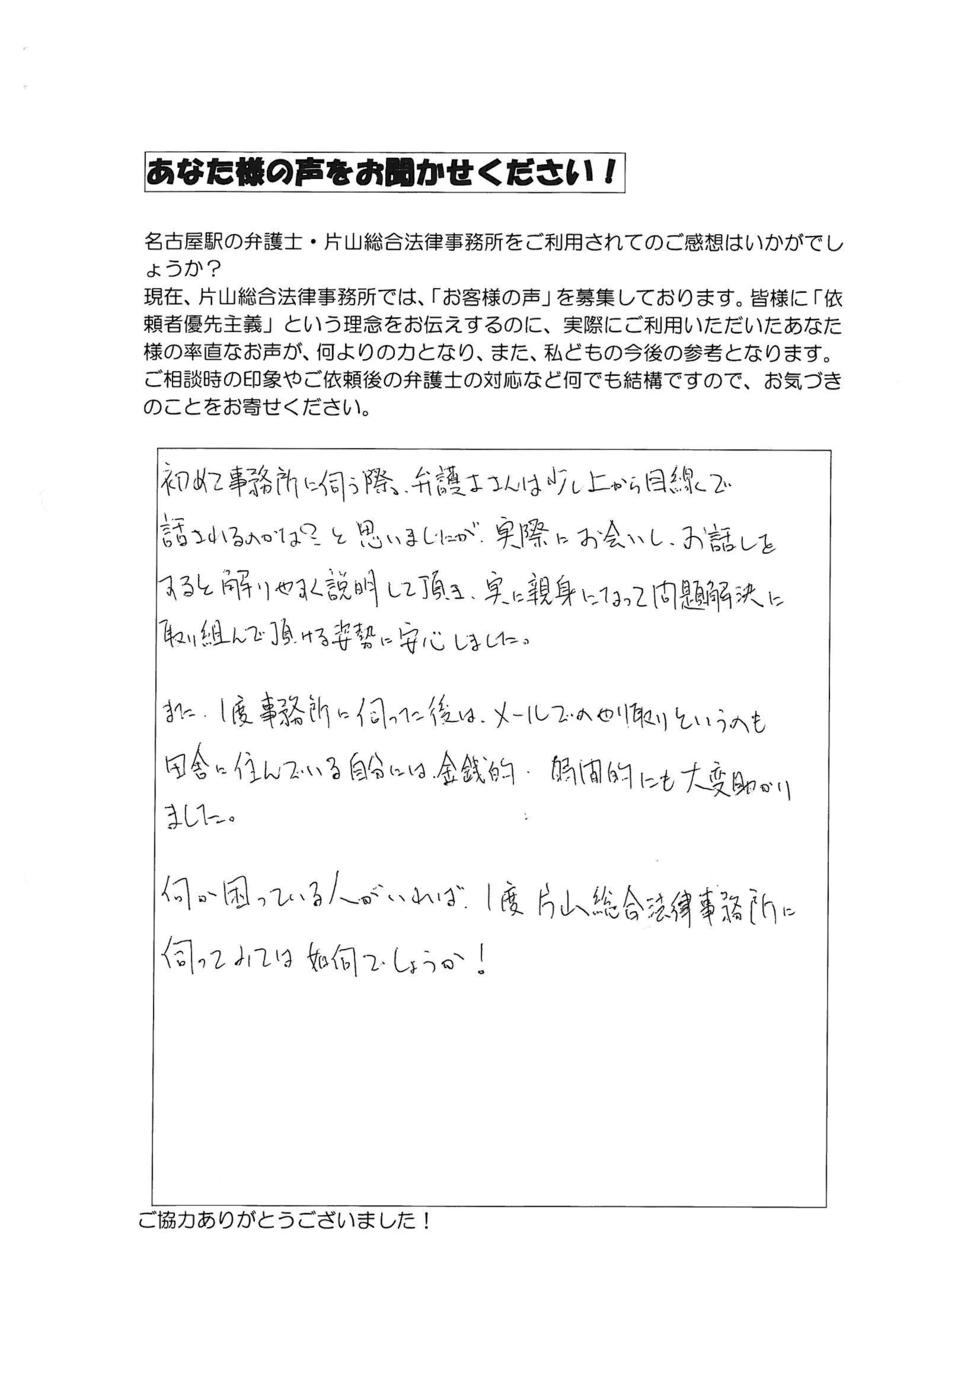 あなた様の声をお聞かせください！
名古屋駅の弁護士・片山総合法律事務所をご利用されてのご感想はいかがでし
ょうか？
現在、片山総合法律事務所では、「お客様の声」を募集しております。皆様に「依
頼者優先主義」という理念をお伝えするのに、実際にご利用いただいたあなた
様の率直なお声が、何よりの力となり、また、私どもの今後の参考となります。
ご相談時の印象やご依頼後の弁護士の対応など何でも結構ですので、お気づき
のことをお寄せください。
初めて事務所に伺う際、弁護士さんは少し上から目線で
話されるのかな？と思いましたが、実際にお会いし、お話しを
すると解りやすく説明して頂き、実に親身になって問題解決に
取り組んで頂ける姿勢に安心しました。
また、1度事務所に伺った後は、メールでのやり取りというのも
田舎に住んでいる自分には、金銭的・時間的にも大変助かり
ました。
何か困っている人がいれば、1度片山総合法律事務所に
伺ってみては如何でしょうか！
ご協力ありがとうございました！